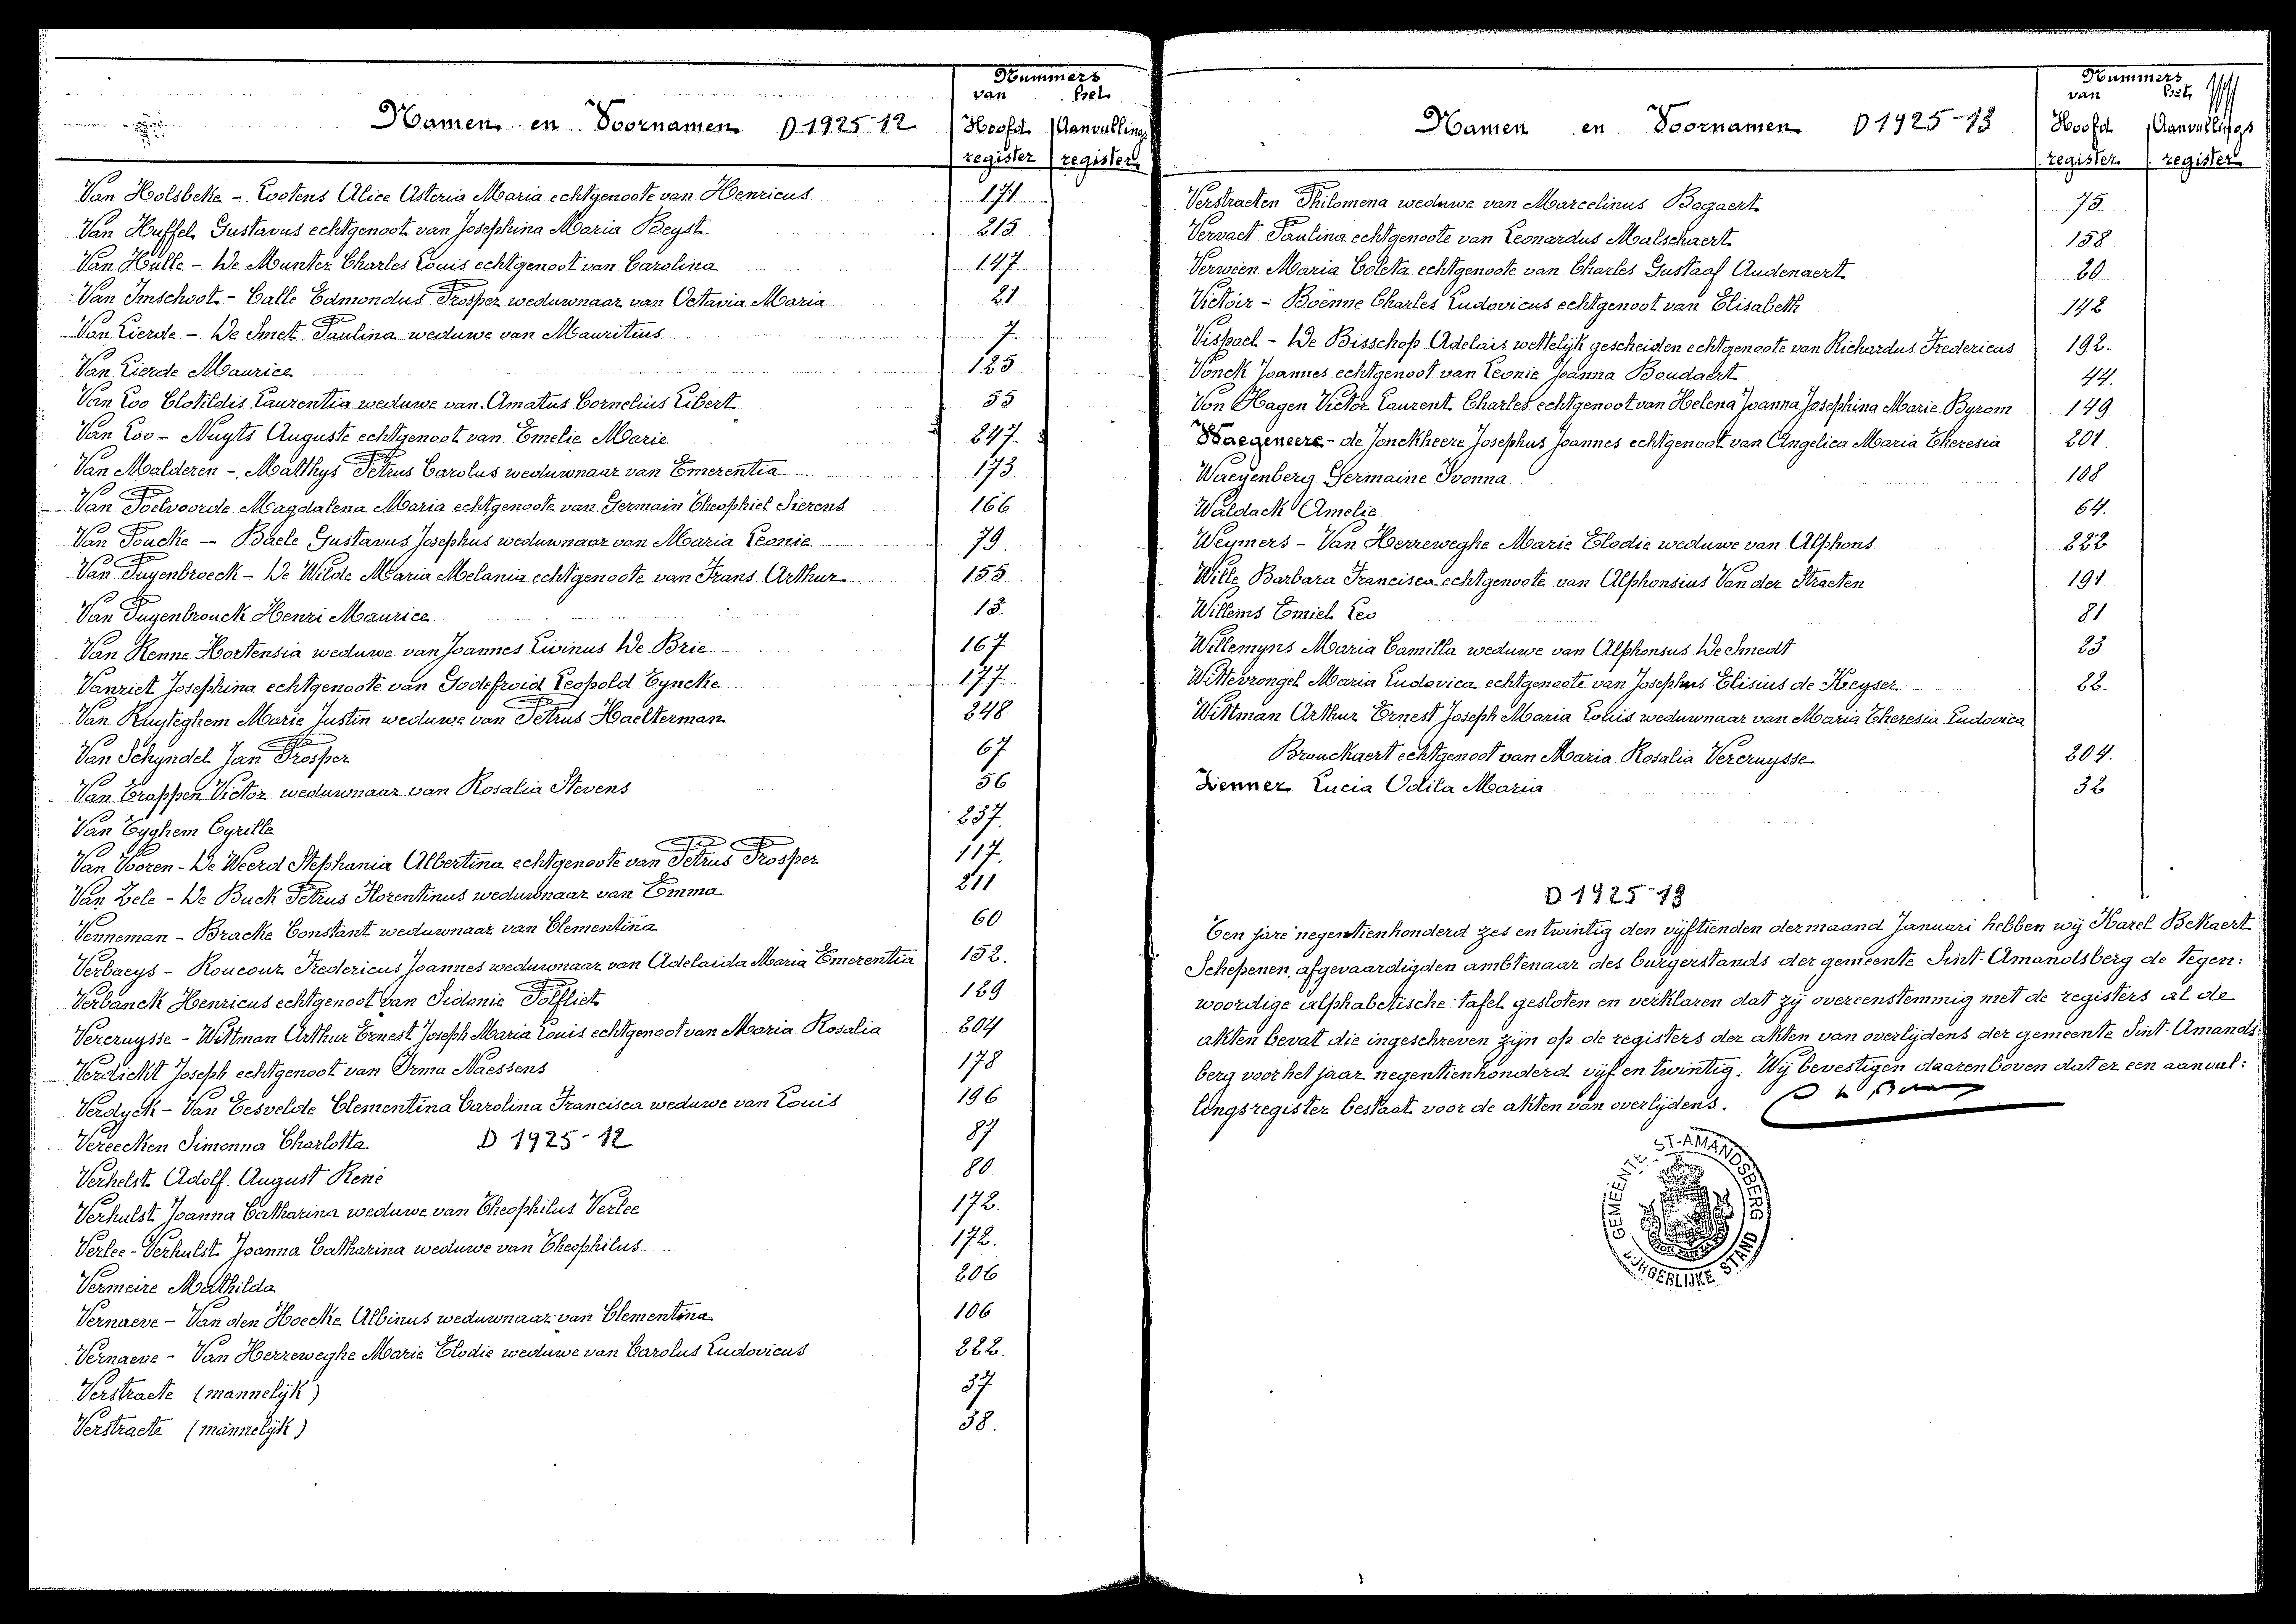 Nummers
van het
Namen en Voornamen D 1925-12
Hoofd Aanvullings
register register
Van Holsbeke - Lootens Alice Asteria Maria echtgenoote van Henricus 171
Van Huffel Gustavus echtgenoot van Josephina Maria Beyst 215
Van Hulle - De Munter Charles Louis echtgenoot van Carolina 147
Van Imschoot - Calle Edmondus Prosper weduwnaar van Octavia Maria 21
Van Lierde - De Smet Paulina weduwe van Mauritius 7
Van Lierde Maurice 125
Van Loo Clotildis Laurentia weduwe van Amatus Cornelius Libert 55
Van Loo - Nuyts Auguste echtgenoot van Emelie Marie 247.
Van Malderen - Matthys Petrus Carolus weduwnaar van Emerentia 173.
Van Poelvoorde Magdalena Maria echtgenoote van Germain Theophiel Sierens 166
Van Poucke - Baele Gustavus Josephus weduwnaar van Maria Leonie 79.
Van Puyenbroeck - De Wilde Maria Melania echtgenoote van Frans Arthur 155
Van Puyenbrouck Henri Maurice 13.
Van Renne Hortensia weduwe van Joannes Livinus De Brie 167
Vanriet Josephina echtgenoote van Godefroid Leopold Eyncke 177
Van Ruyteghem Marie Justin weduwe van Petrus Haelterman 248
Van Schyndel Jan Prosper 67
Van Trappen Victor weduwnaar van Rosalia Stevens 56
Van Tyghem Cyrille 237.
Van Vooren - De Weerd Stephania Albertina echtgenoote van Petrus Prosper 117.
Van Zele - De Buck Petrus Florentinus weduwnaar van Emma 211
Venneman - Bracke Constant weduwnaar van Clementina 60
Verbaeys - Roucour Fredericus Joannes weduwnaar van Adelaida Maria Emerentia 152.
Verbanck Henricus echtgenoot van Sidonie Polfliet 129
Vercruysse - Wittman Arthur Ernest Joseph Maria Louis echtgenoot van Maria Rosalia 204
Verdickt Joseph echtgenoot van Irma Naessens 178
Verdyck - Van Eesvelde Clementina Carolina Francisca weduwe van Louis 196
Vereecken Simonna Charlotta D 1925-12 87
Verhelst Adolf August René 80
Verhulst Joanna Catharina weduwe van Theophilus Verlee 172.
Verlee - Verhulst Joanna Catharina weduwe van Theophilus 172.
Vermeire Mathilda 206
Vernaeve - Van den Hoecke Albinus weduwnaar van Clementina 106
Vernaeve - Van Herreweghe Marie Elodie weduwe van Carolus Ludovicus 222.
Verstraete (mannelijk) 37
Verstraete (mannelijk) 38.
Nummers
van het
Namen en Voornamen D 1925-13
Hoofd Aanvullings
register register
Verstraeten Philomena weduwe van Marcelinus Bogaert 75
Vervaet Paulina echtgenoote van Leonardus Malschaert 158
Verween Maria Coleta echtgenoote van Charles Gustaaf Audenaert 20
Victoir - Boënne Charles Ludovicus echtgenoot van Elisabeth 142
Vispoel - De Bisschop Adelais wettelijk gescheiden echtgenoote van Richardus Fredericus 192.
Vonck Joannes echtgenoot van Leonie Joanna Boudaert 44.
Von Hagen Victor Laurent Charles echtgenoot van Helena Joanna Josephina Marie Byrom 149
Waegeneere - de Jonckheere Josephus Joannes echtgenoot van Angelica Maria Theresia 201.
Waeyenberg Germaine Ivonna 108
Waldack Amelie 64.
Weymers - Van Herreweghe Marie Elodie weduwe van Alphons 222
Wille Barbara Francisca echtgenoote van Alphonsius Van der Straeten 191
Willems Emiel Leo 81
Willemyns Maria Camilla weduwe van Alphonsus De Smedt 23
Wittevrongel Maria Ludovica echtgenoote van Josephus Elisius de Keyser 22.
Wittman Arthur Ernest Joseph Maria Louis weduwnaar van Maria Theresia Ludovica
Brouckaert echtgenoot van Maria Rosalia Vercruysse 204.
Zenner Lucia Odila Maria 32
D 1925-13
Ten jare negentienhonderd zes en twintig den vijftienden der maand Januari hebben wij Karel Bekaert
Schepenen, afgevaardigden ambtenaar des burgerstands der gemeente Sint-Amandsberg de tegen:
woordige alphabetische tafel gesloten en verklaren dat zij overeenstemmig met de registers al de
akten bevat die ingeschreven zijn op de registers der akten van overlijdens der gemeente Sint-Amands:
berg voor het jaar negentienhonderd vijf en twintig. Wij bevestigen daarenboven dat er een aanvul:
lingsregister bestaat voor de akten van overlijdens.
GEMEENTE ST-AMANDSBERG
BURGERLIJKE STAND